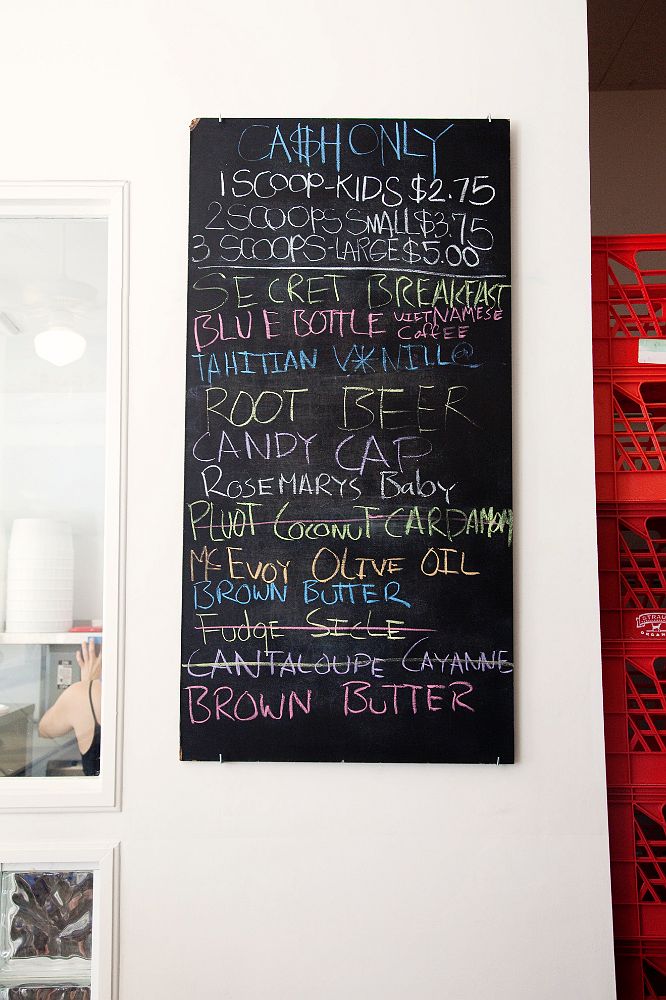 CA$H ONLY
1 SCOOP-KIDS $2.75
2 SCOOPS SMALL $3.75
3 SCOOPS-LARGE $5.00
SECRET BREAKFAST
BLUE BOTTLE VIETNAMESE COFFEE
TAHITIAN V*NILL@
ROOT BEER
CANDY CAP
ROSEMARYS Baby
PLUOT COCONUT CARDAMOM
McEVOY OLIVE OIL
BROWN BUTTER
FUDGE SICLE
CANTALOUPE CAYANNE
BROWN BUTTER
STRAU
ORGAN